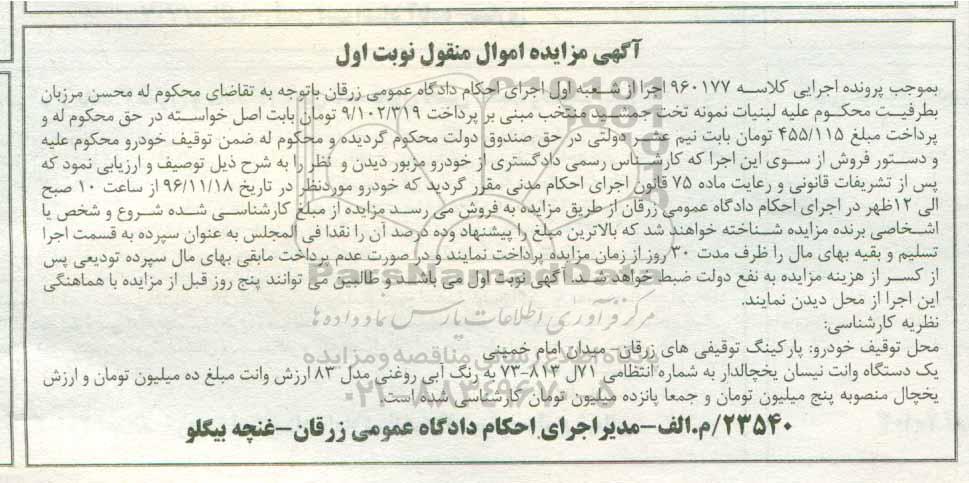 آگهی مزایده اموال منقول نوبت اول
بموجب پرونده اجرایی کلاسه ۹۶۰۱۷۷ اجرا از شعبه اول اجرای احکام دادگاه عمومی زرقان باتوجه به تقاضای محکوم له محسن مرزبان
بطرفیت محکوم علیه لبنیات نمونه تخت جمشید منتخب مبنی بر پرداخت ۹/۱۰۲/۳۱۹ تومان بابت اصل خواسته در حق محکوم له و
پرداخت مبلغ ۴۵۵/۱۱۵ تومان بابت نیم عشر دولتی در حق صندوق دولت محکوم گردیده و محکوم له ضمن توقیف خودرو محکوم علیه
و دستور فروش از سوی این اجرا که کارشناس رسمی دادگستری از خودرو مزبور دیدن و نظر را به شرح ذیل توصیف و ارزیابی نمود که
پس از تشریفات قانونی و رعایت ماده ۷۵ قانون اجرای احکام مدنی مقرر گردید که خودرو موردنظر در تاریخ ۹۶/۱۱/۱۸ از ساعت ۱۰ صبح
الی ۱۲ظهر در اجرای احکام دادگاه عمومی زرقان از طریق مزایده به فروش می رسد مزایده از مبلغ کارشناسی شده شروع و شخص یا
اشخاصی برنده مزایده شناخته خواهند شد که بالاترین مبلغ را پیشنهاد وده درصد آن را نقدا فی المجلس به عنوان سپرده به قسمت اجرا
تسلیم و بقیه بهای مال را ظرف مدت ۳۰ روز از زمان مزایده پرداخت نمایند و در صورت عدم پرداخت مابقی بهای مال سپرده تودیعی پس
از کسر از هزینه مزایده به نفع دولت ضبط خواهد شد. آگهی نوبت اول می باشد و طالبین می توانند پنج روز قبل از مزایده با هماهنگی
این اجرا از محل دیدن نمایند.
مرکز فرآوری اطلاعات پارس نماد داده ها
نظریه کارشناسی:
محل توقیف خودرو: پارکینگ توقیفی های زرقان-میدان امام خمینی
یک دستگاه وانت نیسان یخچالدار به شماره انتظامی ۷۱ل ۸۱۳-۷۳ به رنگ آبی روغنی مدل ۸۳ ارزش وانت مبلغ ده میلیون تومان و ارزش
یخچال منصوبه پنج میلیون تومان و جمعا پانزده میلیون تومان کارشناسی شده است.
۲۳۵۴۰/م.الف-مدیراجرای احکام دادگاه عمومی زرقان-غنچه بیگلو